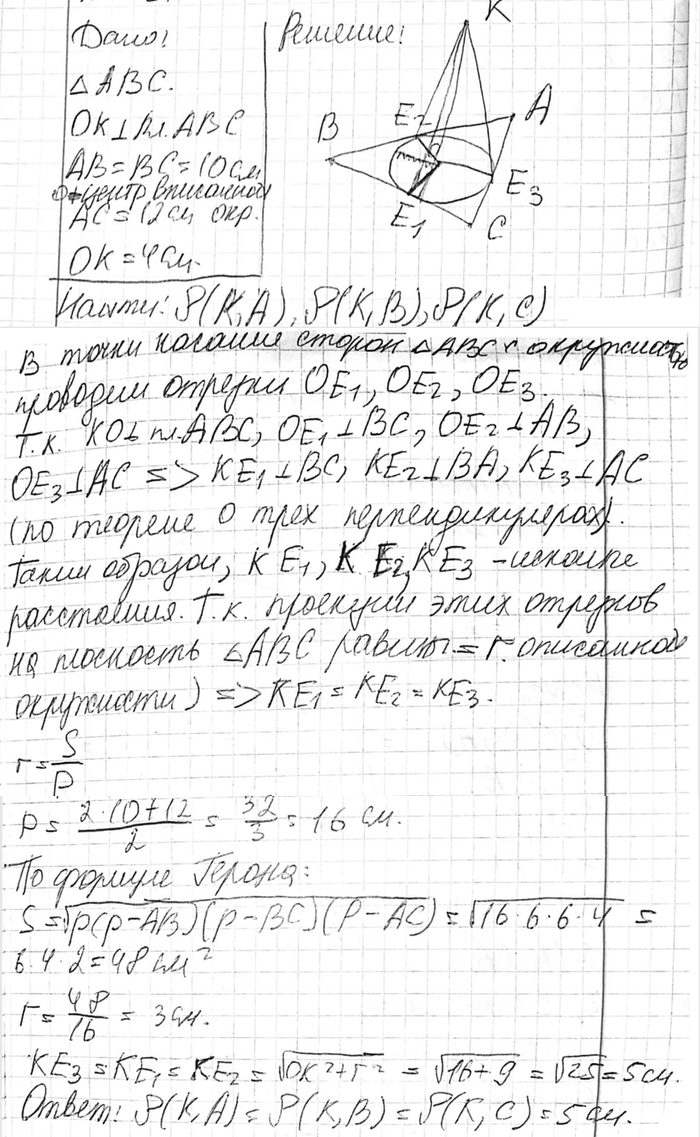 Дано:
Решение:
△ABC.
OK⊥пл. ABC
AB=BC=10см
O-центр вписанной
AC=12см окр.
OK=4см.
K
A
B
E2
O
E3
E1
C
Найти: ρ(K,A), ρ(K,B), ρ(K,C)
В точки касание сторон △ABC с окружностью
проводим отрезки OE1, OE2, OE3.
Т.к. KO⊥пл.ABC, OE1⊥BC, OE2⊥AB,
OE3⊥AC => KE1⊥BC, KE2⊥BA, KE3⊥AC
(по теореме о трех перпендикулерах).
Таким образом, KE1, KE2, KE3 - искомые
расстояния. Т.к. проекции этих отрезков
на плоскость △ABC равны = r. описанной
окружности) => KE1 = KE2 = KE3.
r = S/P
P = (2·10+12)/2 = 32/3 = 16 см.
По формуле Герона:
S = √P(P-AB)(P-BC)(P-AC) = √16·6·6·4 =
6·4·2=48см²
r = 48/16 = 3см.
KE3 = KE1 = KE2 = √OK²+r² = √16+9 = √25 = 5см.
Ответ: ρ(K,A) = ρ(K,B) = ρ(K,C) = 5см.